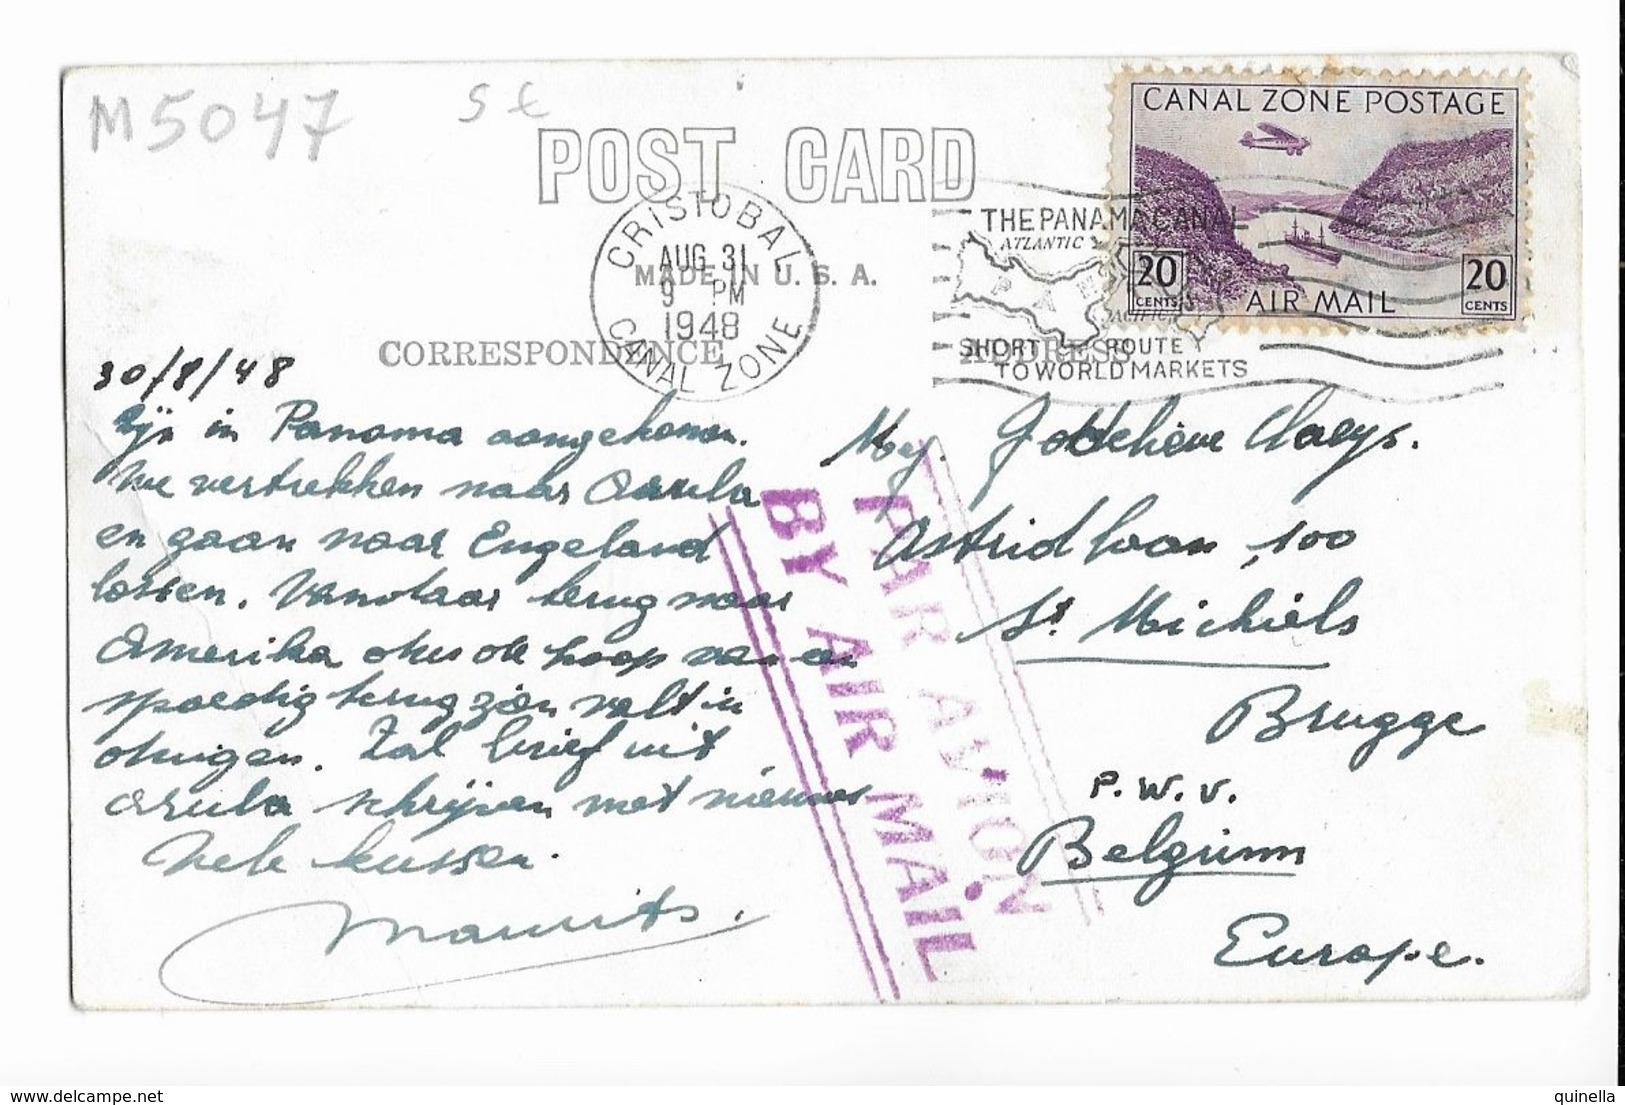 M5047
5 €
POST CARD
CANAL ZONE POSTAGE
20 CENTS
AIR MAIL
20 CENTS
CRISTOBAL
AUG 31
9 PM
1948
CANAL ZONE
THE PANAMA CANAL
ATLANTIC
PACIFIC
SHORT ROUTE
TO WORLD MARKETS
MADE IN U.S.A.
CORRESPONDENCE
ADDRESS
30/8/48
Zijn in Panama aangekomen.
We vertrekken naar
en gaan naar Engeland
lossen. Vandaar terug naar
Amerika dus de hoop van
spoedig terug zien valt in
duigen. Zal brief uit
schrijven met nieuws
Vele kussen.
Maurits.
Mej. Claeys.
Astridlaan, 100
St. Michiels
Brugge
P.W.V.
Belgium
Europe.
PAR AVION
BY AIR MAIL
delcampe.net
quinella